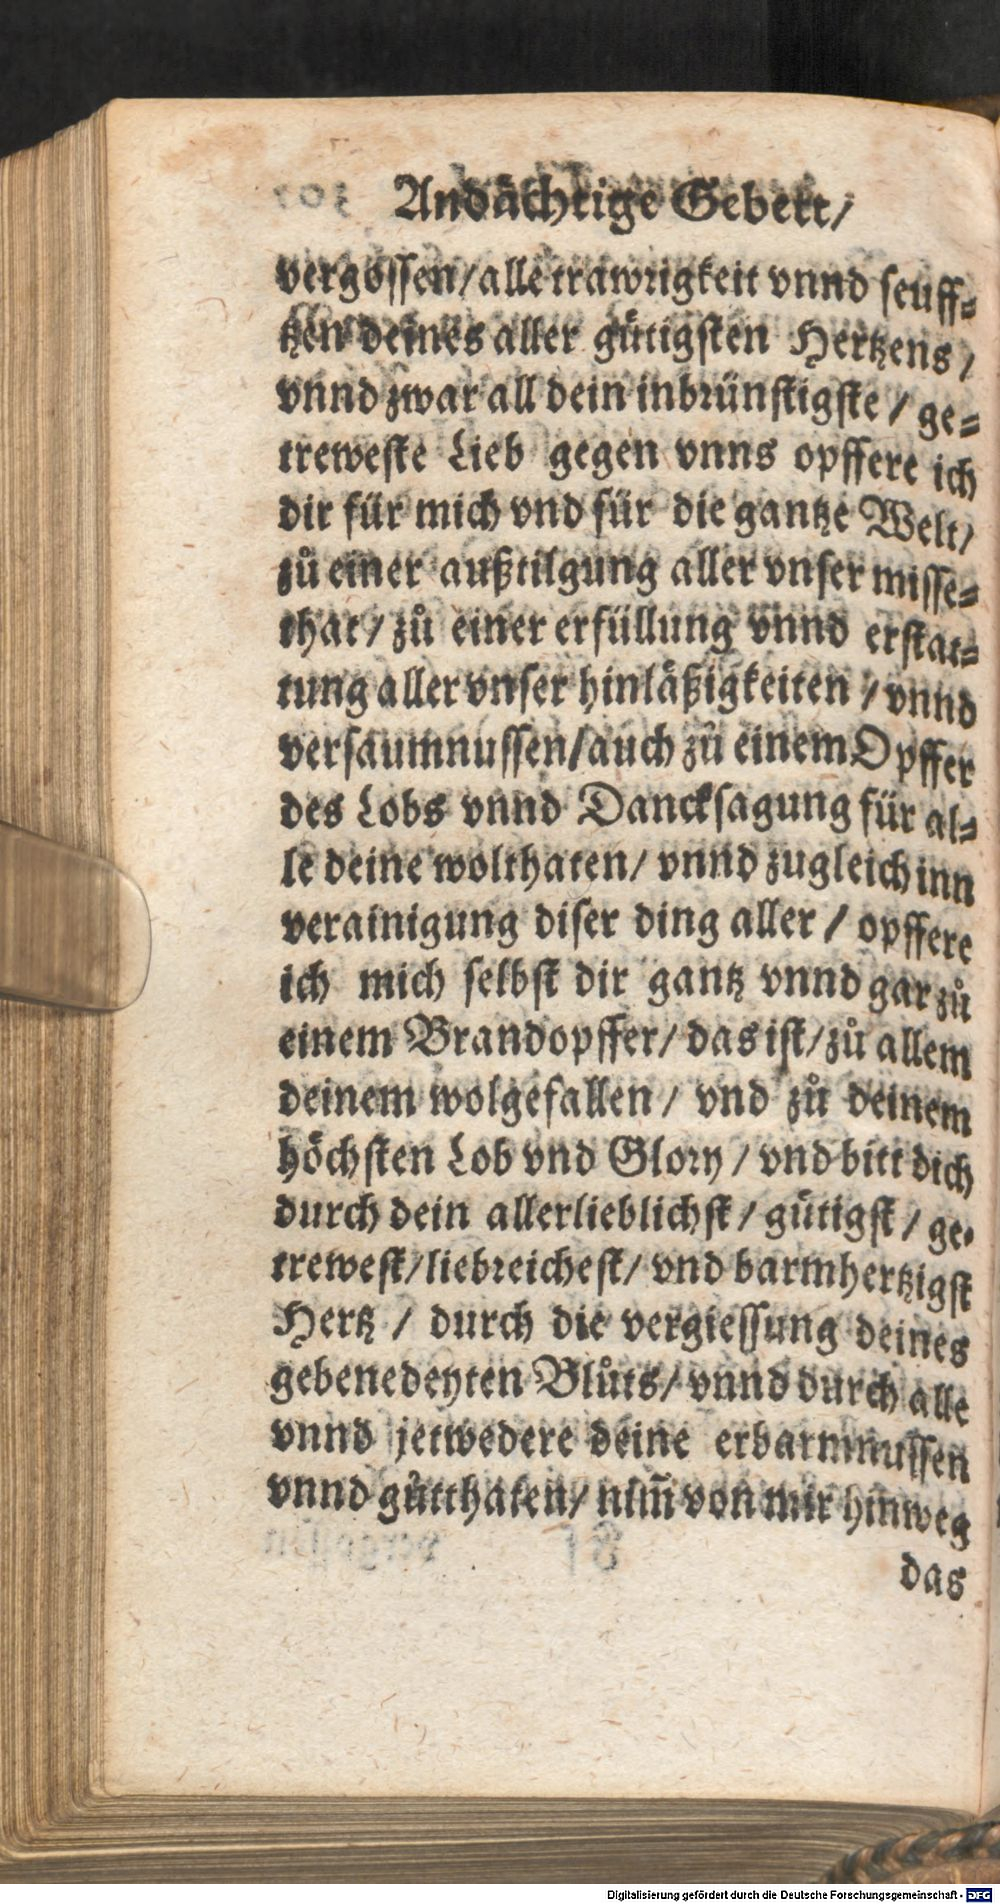 Andächtige Gebett/
vergossen/alle trawrigkeit vnnd seuff=
tzen deines aller gütigsten Hertzens/
vnnd zwar all dein inbrünstigste/ ge=
treweste Lieb gegen vnns opffere ich
dir für mich vnd für die gantze Welt/
zů einer außtilgung aller vnser misse=
that/ zů einer erfüllung vnnd erstat=
tung aller vnser hinläßigkeiten/ vnnd
versaumnussen/auch zů einem Opffer
des Lobs vnnd Dancksagung für al=
le deine wolthaten/ vnnd zugleich inn
verainigung diser ding aller/ opffere
ich mich selbst dir gantz vnnd gar zů
einem Brandopffer/ das ist/ zů allem
deinem wolgefallen/ vnd zů deinem
höchsten Lob vnd Glory/ vnd bitt dich
durch dein allerlieblichst/ gütigst/ ge=
trewest/liebreichest/ vnd barmhertzigst
Hertz/ durch die vergiessung deines
gebenedeyten Blůts/ vnnd durch alle
vnnd jetwedere deine erbarmnussen
vnnd gůtthaten/ nim̃ von mir hinweg
das
Digitalisierung gefördert durch die Deutsche Forschungsgemeinschaft - DFG